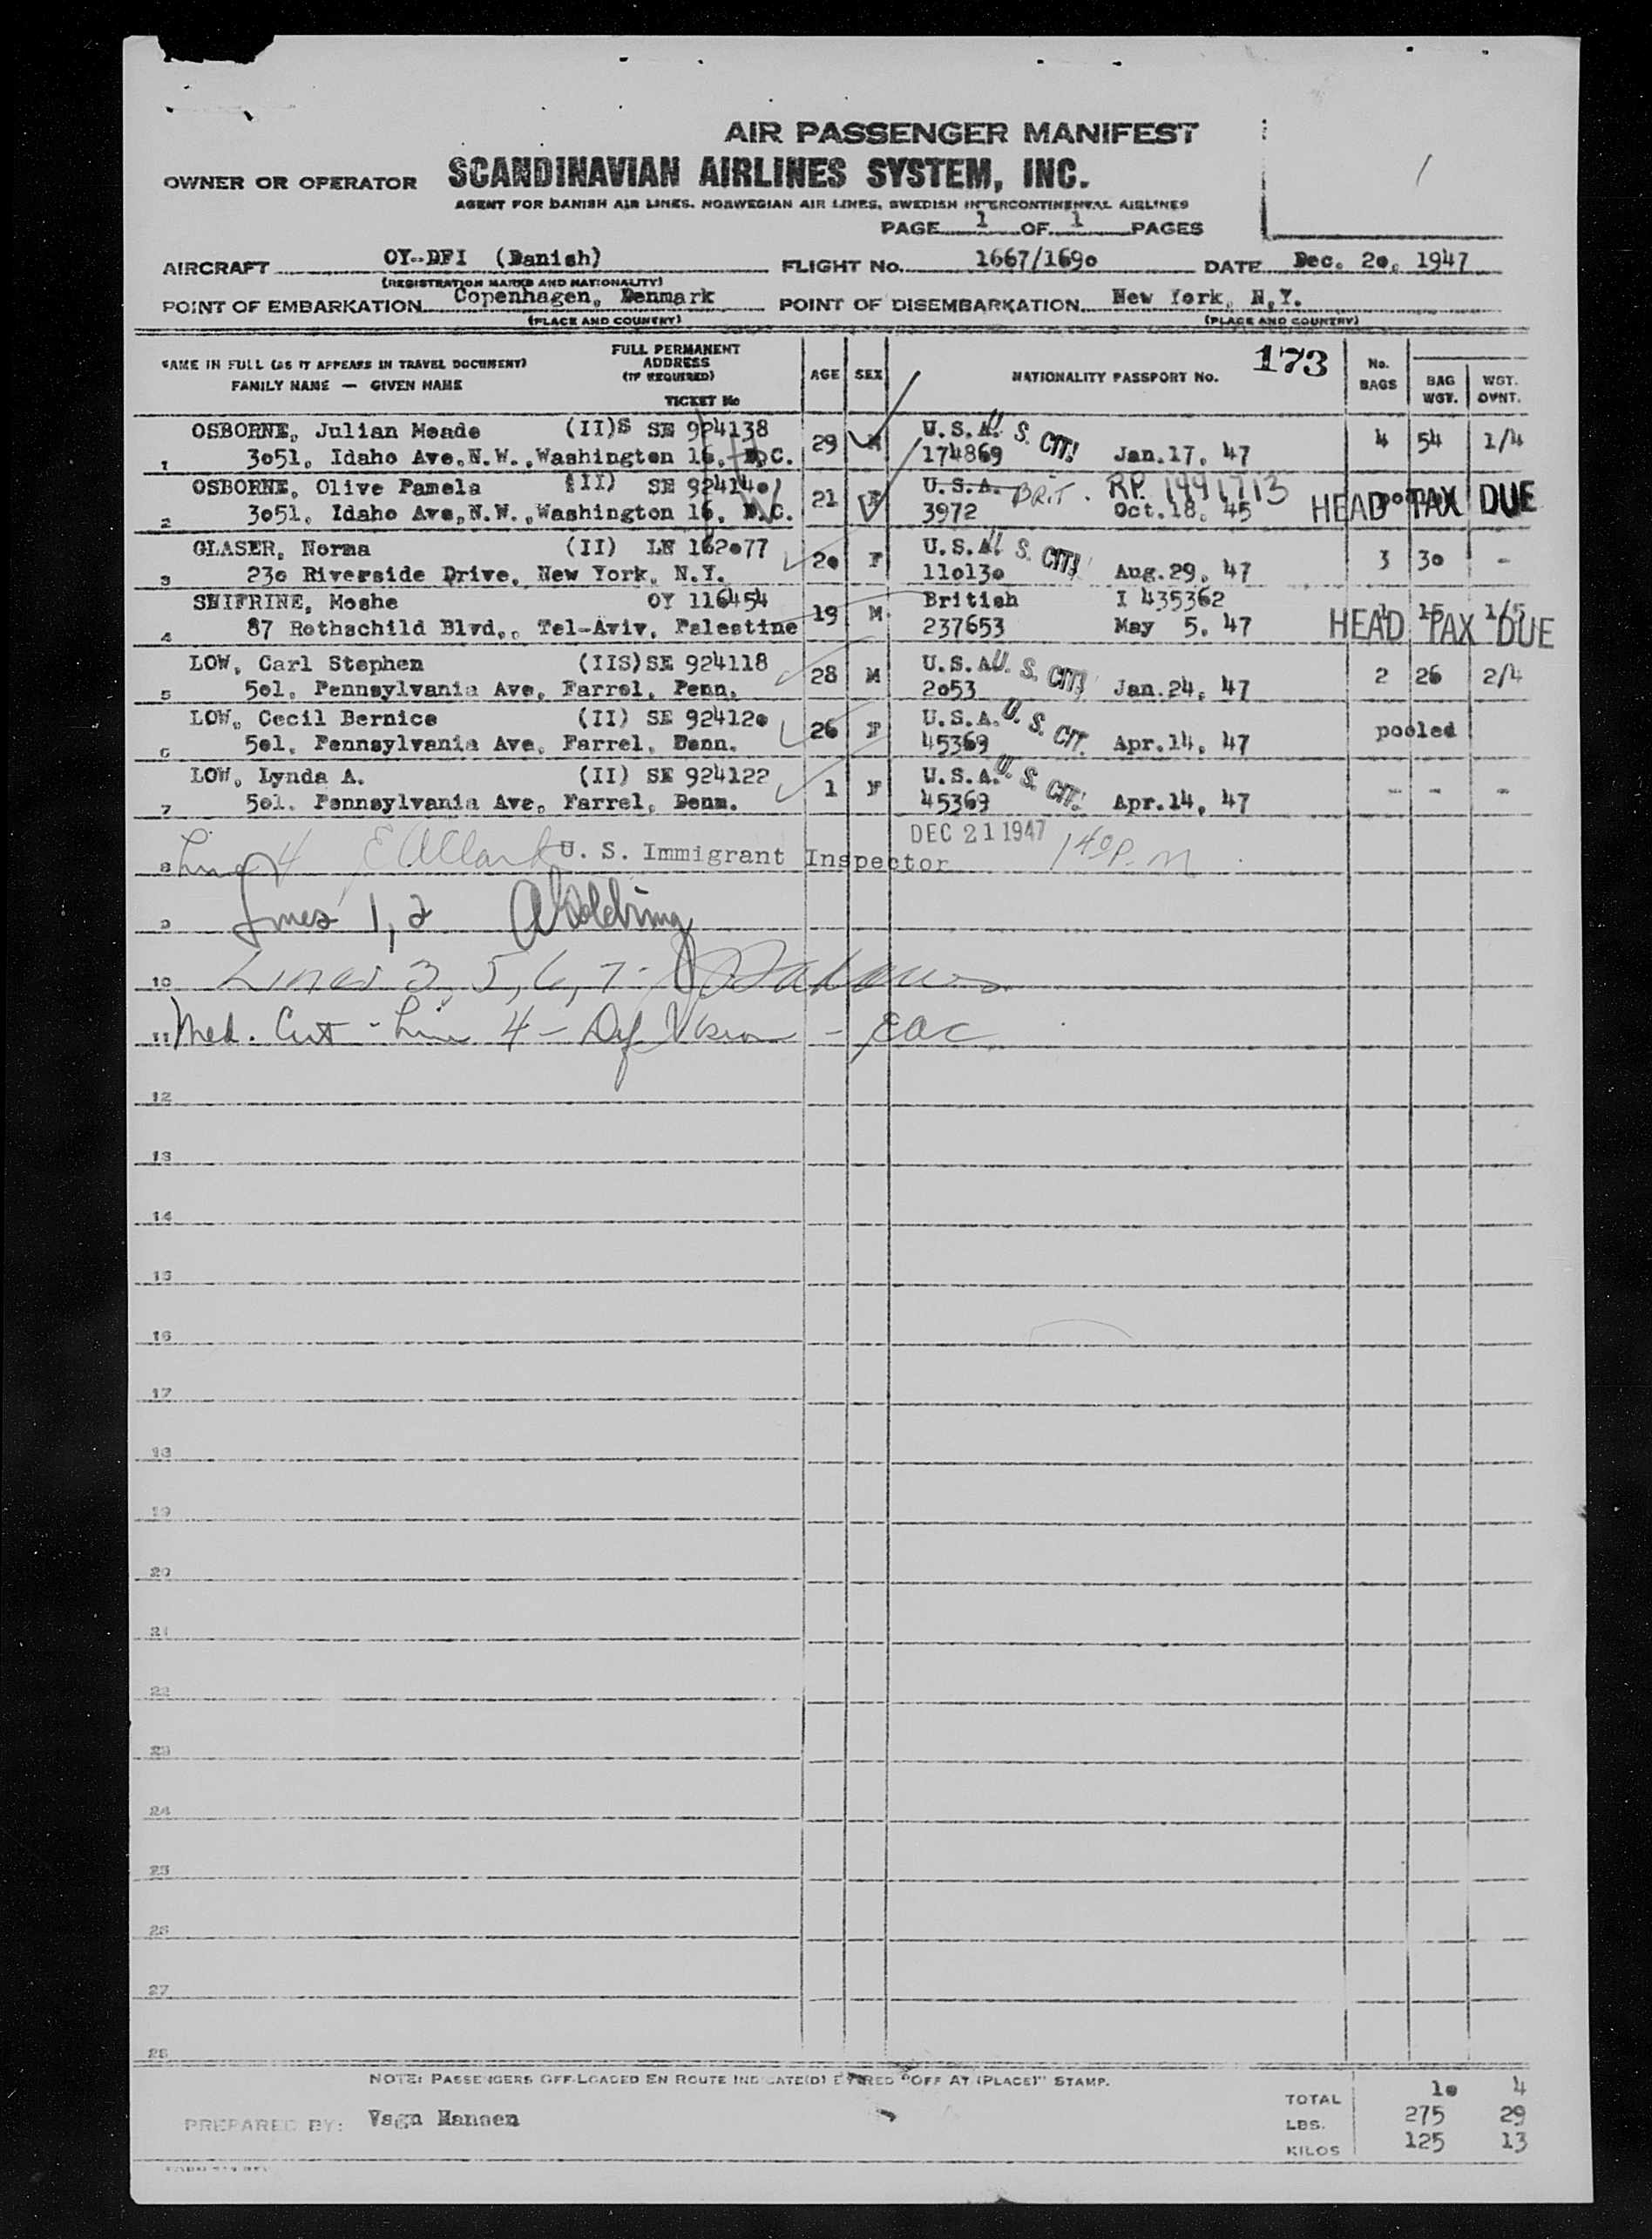 AIR PASSENGER MANIFEST
/
OWNER OR OPERATOR SCANDINAVIAN AIRLINES SYSTEM, INC.
AGENT FOR DANISH AIR LINES, NORWEGIAN AIR LINES, SWEDISH INTERCONTINENTAL AIRLINES
PAGE 1 OF 1 PAGES
AIRCRAFT OY-DFI (Danish) FLIGHT No. 1667/1690 DATE Dec. 20, 1947
(REGISTRATION MARKS AND NATIONALITY)
POINT OF EMBARKATION Copenhagen, Denmark POINT OF DISEMBARKATION New York, N.Y.
(PLACE AND COUNTRY) (PLACE AND COUNTRY)
NAME IN FULL (AS IT APPEARS IN TRAVEL DOCUMENT) FULL PERMANENT ADDRESS (IF REQUIRED) AGE SEX NATIONALITY PASSPORT No. 173 No. BAGS BAG WGT. WGT. OVNT.
FAMILY NAME — GIVEN NAME TICKET No
OSBORNE, Julian Meade (II)S SE 924138 29 M U.S.A. U. S. CIT. 4 54 1/4
1 3051, Idaho Ave,N.W.,Washington 16, D.C. 174869 Jan.17, 47
OSBORNE, Olive Pamela (II) SE 924140 21 F U.S.A. BRIT. RP. 1991713 HEAD TAX DUE
2 3051, Idaho Ave,N.W.,Washington 16, D.C. 3972 Oct.18, 45
GLASER, Norma (II) LN 162077 20 F U.S.A. U. S. CIT. 3 30 -
3 230 Riverside Drive, New York, N.Y. 110130 Aug.29, 47
SHIFRINE, Moshe OY 116454 19 M British I 435362 1 15 1/5
4 87 Rothschild Blvd,, Tel-Aviv, Palestine 237653 May 5, 47 HEAD TAX DUE
LOW, Carl Stephen (IIS)SE 924118 28 M U.S.A. U. S. CIT. 2 26 2/4
5 501, Pennsylvania Ave, Farrel, Penn. 2053 Jan.24, 47
LOW, Cecil Bernice (II) SE 924120 26 F U.S.A. U. S. CIT. pooled
6 501, Pennsylvania Ave, Farrel, Penn. 45369 Apr.14, 47
LOW, Lynda A. (II) SE 924122 1 F U.S.A. U. S. CIT. - - -
7 501. Pennsylvania Ave, Farrel, Penn. 45369 Apr.14, 47
DEC 21 1947 140 P.M
8 Line 4 EAClark U. S. Immigrant Inspector
9 Lines 1, 2
10 Lines 3, 5, 6, 7 -
11 Med. Cert - Line 4 - Def Vision - EAC
12
13
14
15
16
17
18
19
20
21
22
23
24
25
26
27
28
NOTE: PASSENGERS OFF-LOADED EN ROUTE INDICATE(D) "OFF AT (PLACE)" STAMP.
TOTAL 10 4
PREPARED BY: Vagn Hansen LBS. 275 29
KILOS 125 13